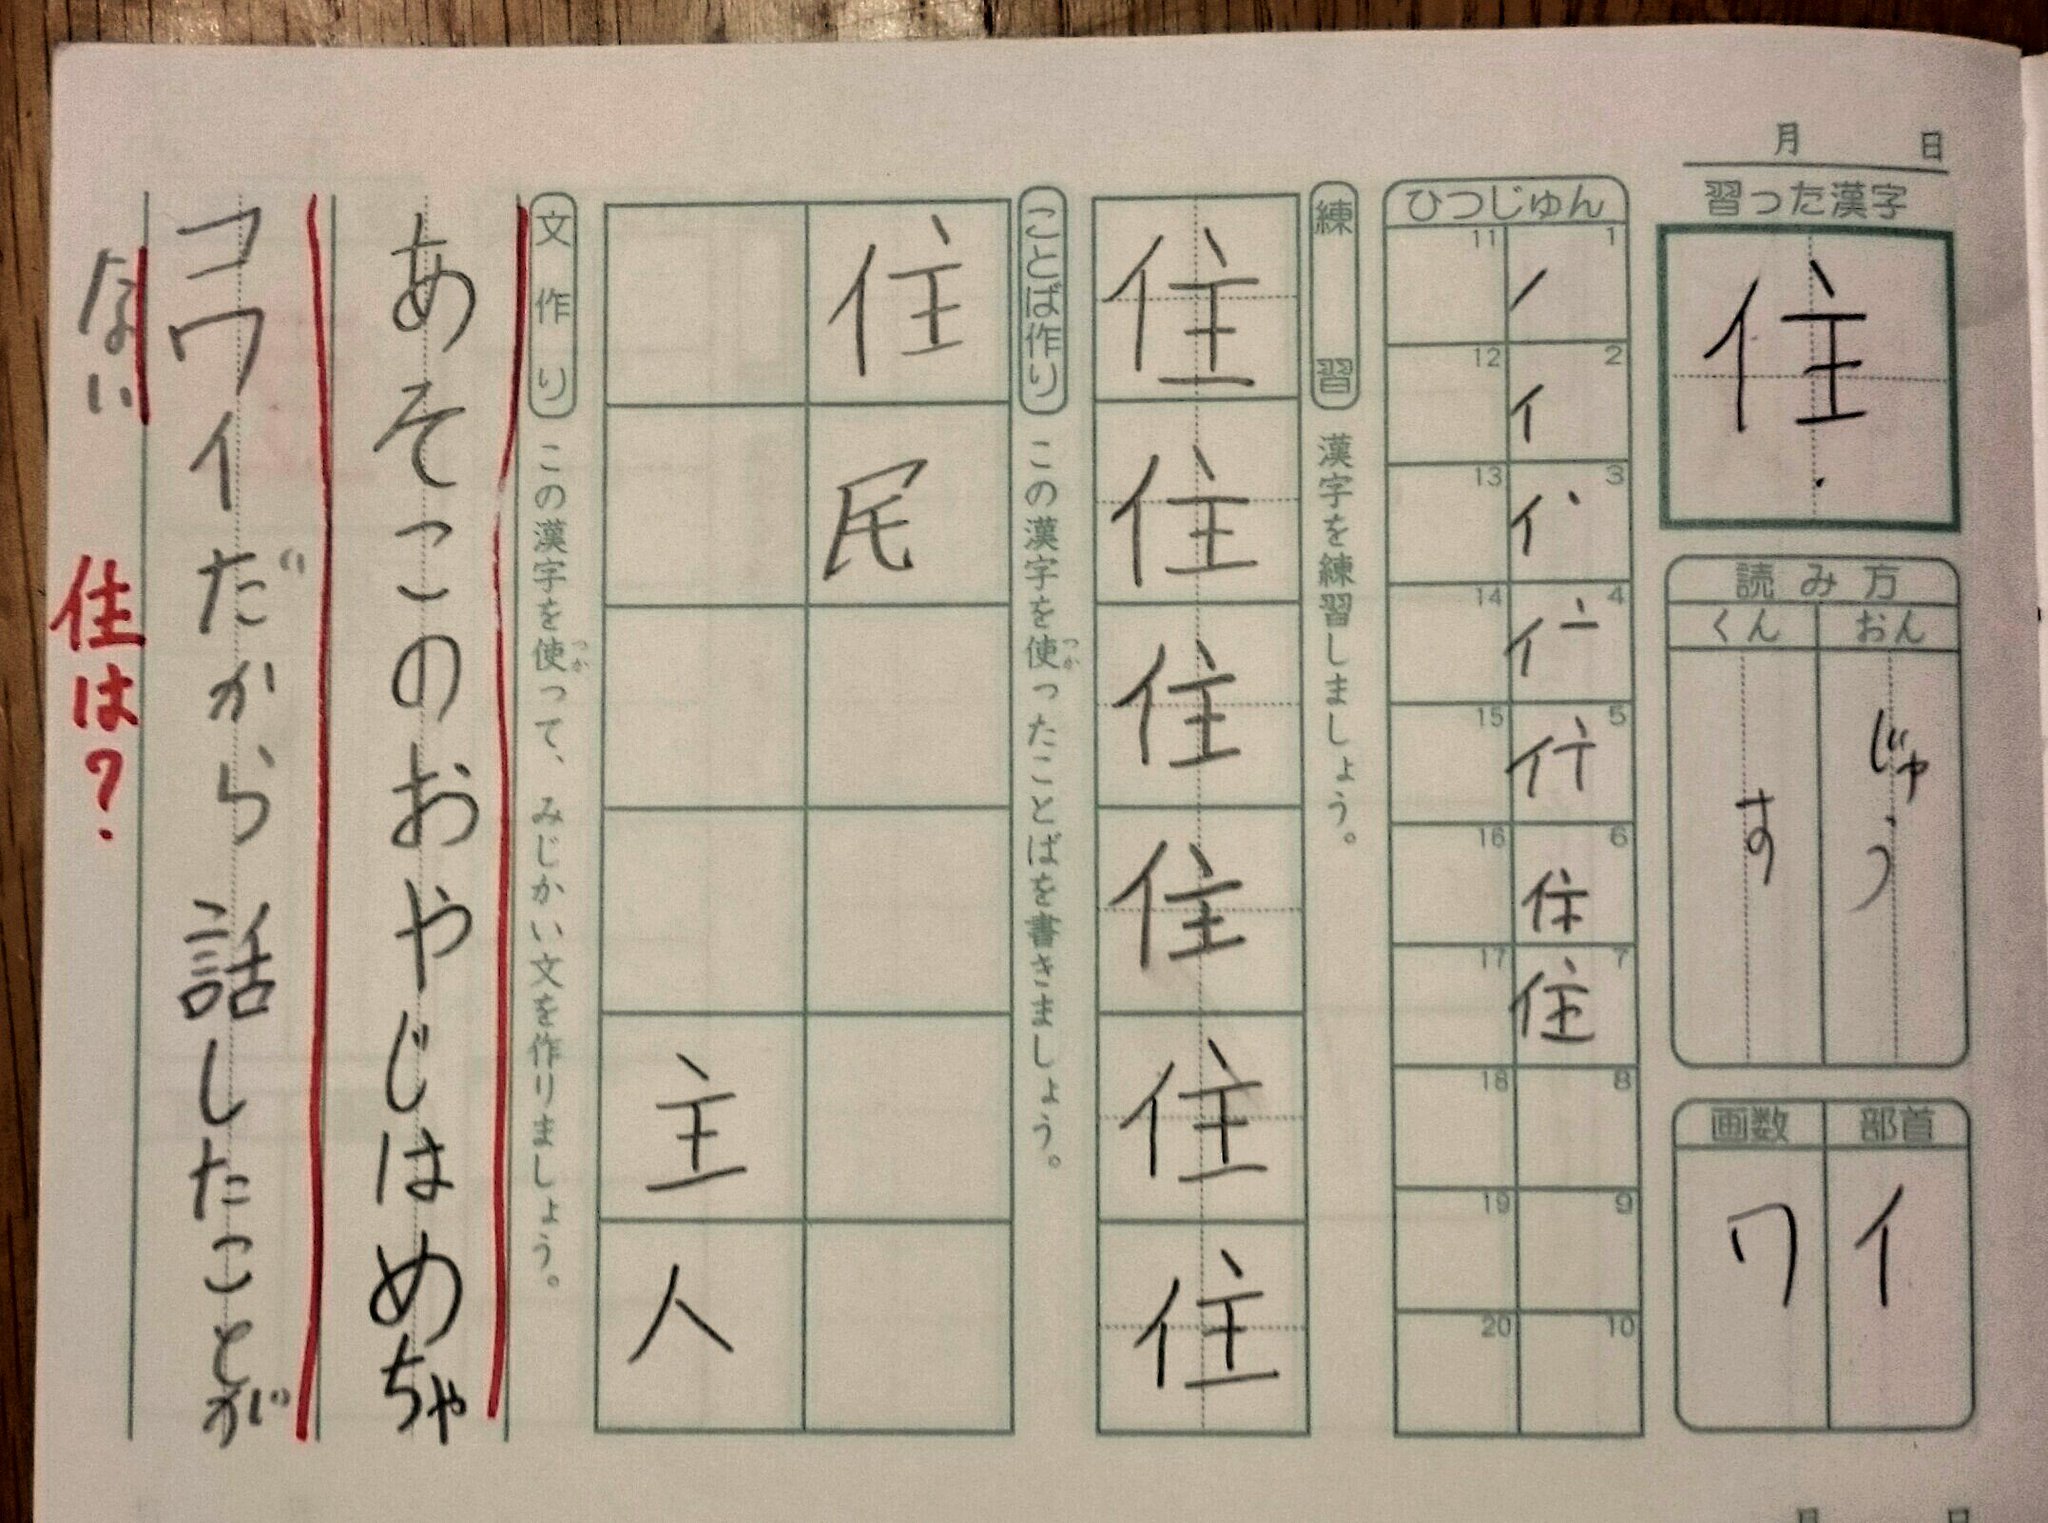 月 日
習った漢字
住
読み方
おん
じゅう
くん
す
部首
イ
画数
ワ
ひつじゅん
1
2
3
4
5
6
7
住
8
9
10
11
12
13
14
15
16
17
18
19
20
練習 漢字を練習しましょう。
住住住住住住
ことば作り この漢字を使ったことばを書きましょう。
つか
住民
主人
文作り この漢字を使って、みじかい文を作りましょう。
つか
あそこのおやじはめちゃ
コワイだから話したことが
ない
住は?
月 日